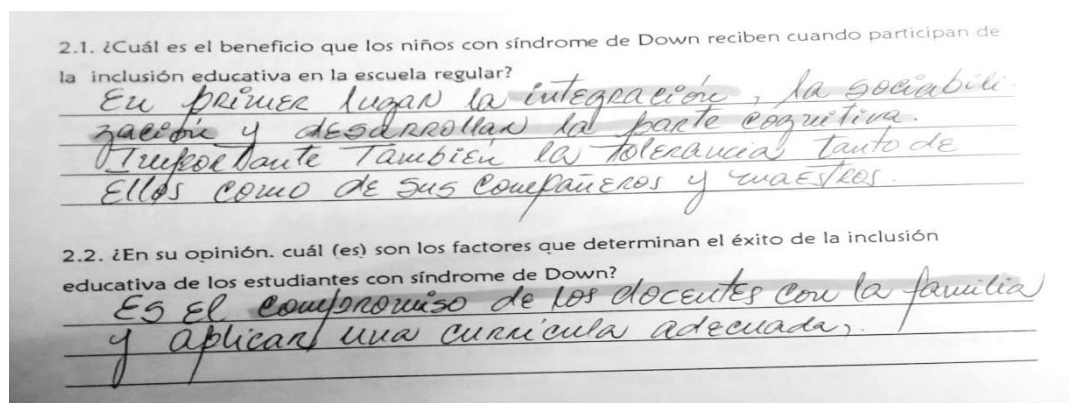 2.1. ¿Cuál es el beneficio que los niños con síndrome de Down reciben cuando participan de
la inclusión educativa en la escuela regular?
En primer lugar la integración, la sociabili-
zación y desarrollar la parte cognitiva.
Importante También la Tolerancia tanto de
Ellos como de sus compañeros y maestros.
2.2. ¿En su opinión. cuál (es) son los factores que determinan el éxito de la inclusión
educativa de los estudiantes con síndrome de Down?
Es El compromiso de los docentes con la familia
y aplicar una currícula adecuada,.